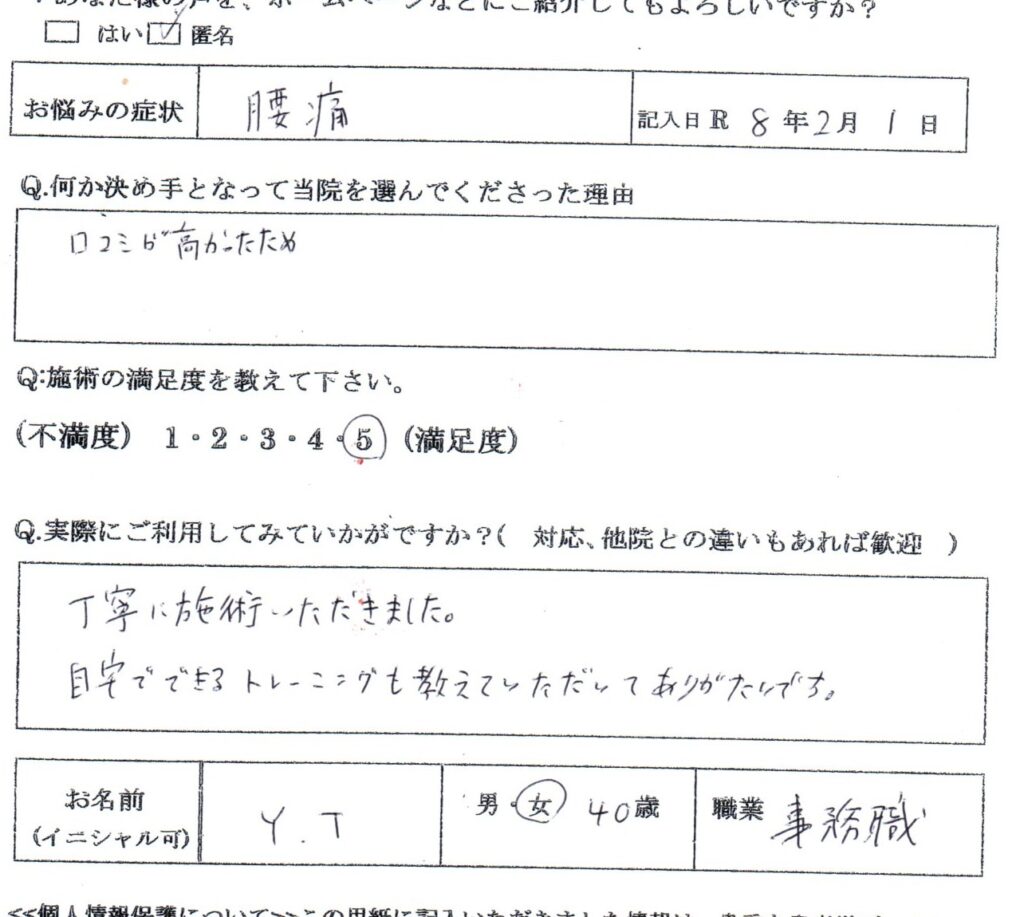 あなた様の声を、ホームページなどにご紹介してもよろしいですか？
□ はい ☑ 匿名
お悩みの症状 腰痛 記入日 R 8 年 2 月 1 日
Q.何か決め手となって当院を選んでくださった理由
口コミが高かったため
Q:施術の満足度を教えて下さい。
(不満度) 1・2・3・4・5 (満足度)
Q.実際にご利用してみていかがですか？( 対応、他院との違いもあれば歓迎 )
丁寧に施術いただきました。
自宅でできるトレーニングも教えていただいてありがたいです。
お名前 Y.T 男・女 40歳 職業 事務職
(イニシャル可)
<<個人情報保護について>>この用紙に記入いただきました情報は、